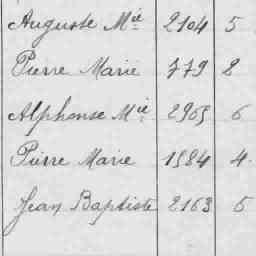 Auguste Mie 2104 5
Pierre Marie 779 8
Alphonse Mie 2965 6
Pierre Marie 1584 4
Jean Baptiste 2163 5